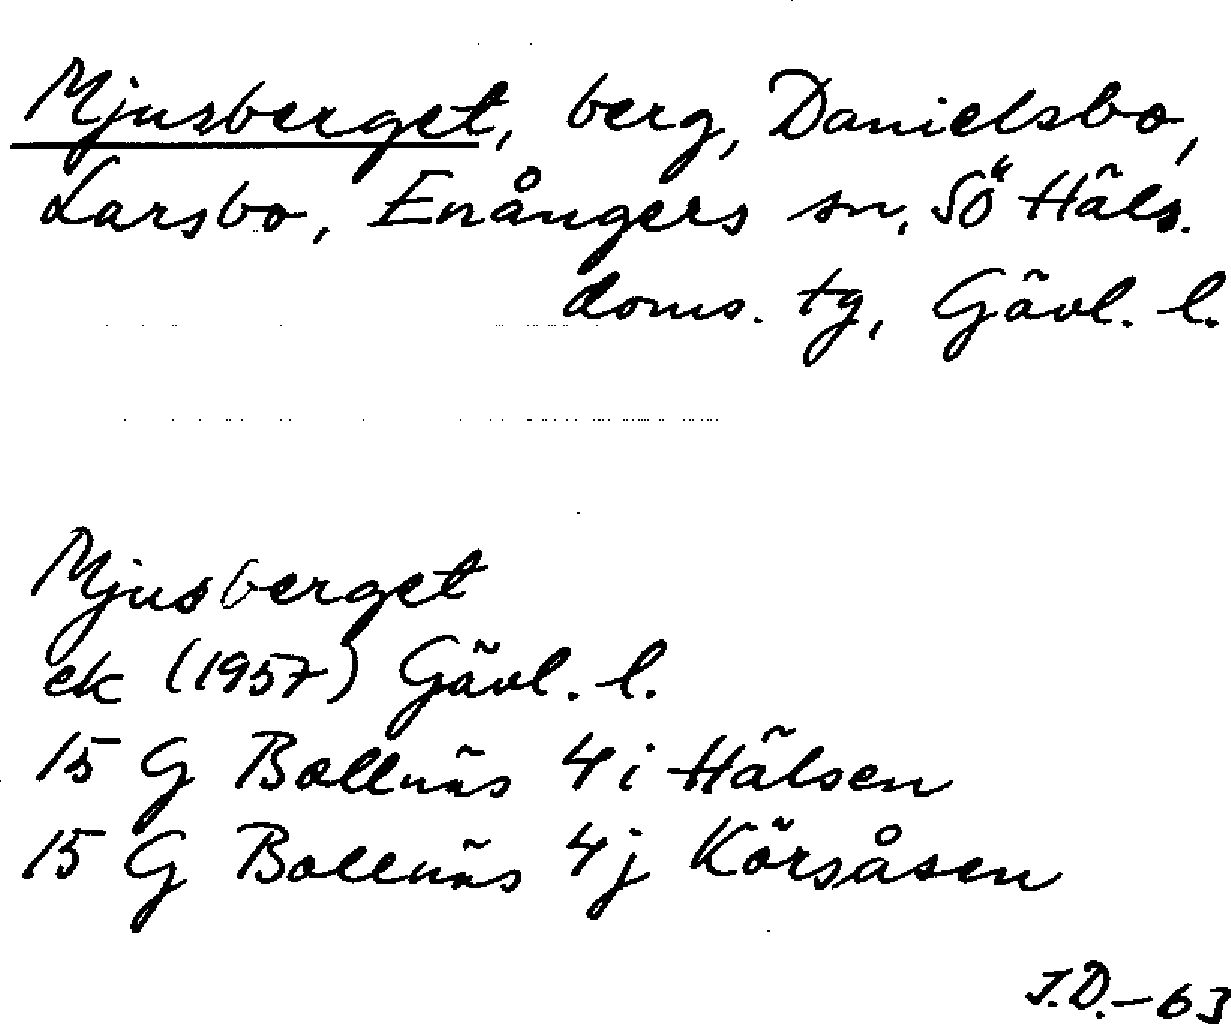 Mjusberget, berg, Danielsbo,
Larsbo, Enångers sn, Sö Häls.
doms. tg, Gävl. l.
Mjusberget
ek (1957) Gävl. l.
15 G Bollnäs 4 i Hälsen
15 G Bollnäs 4 j Körsåsen
J.D.-63